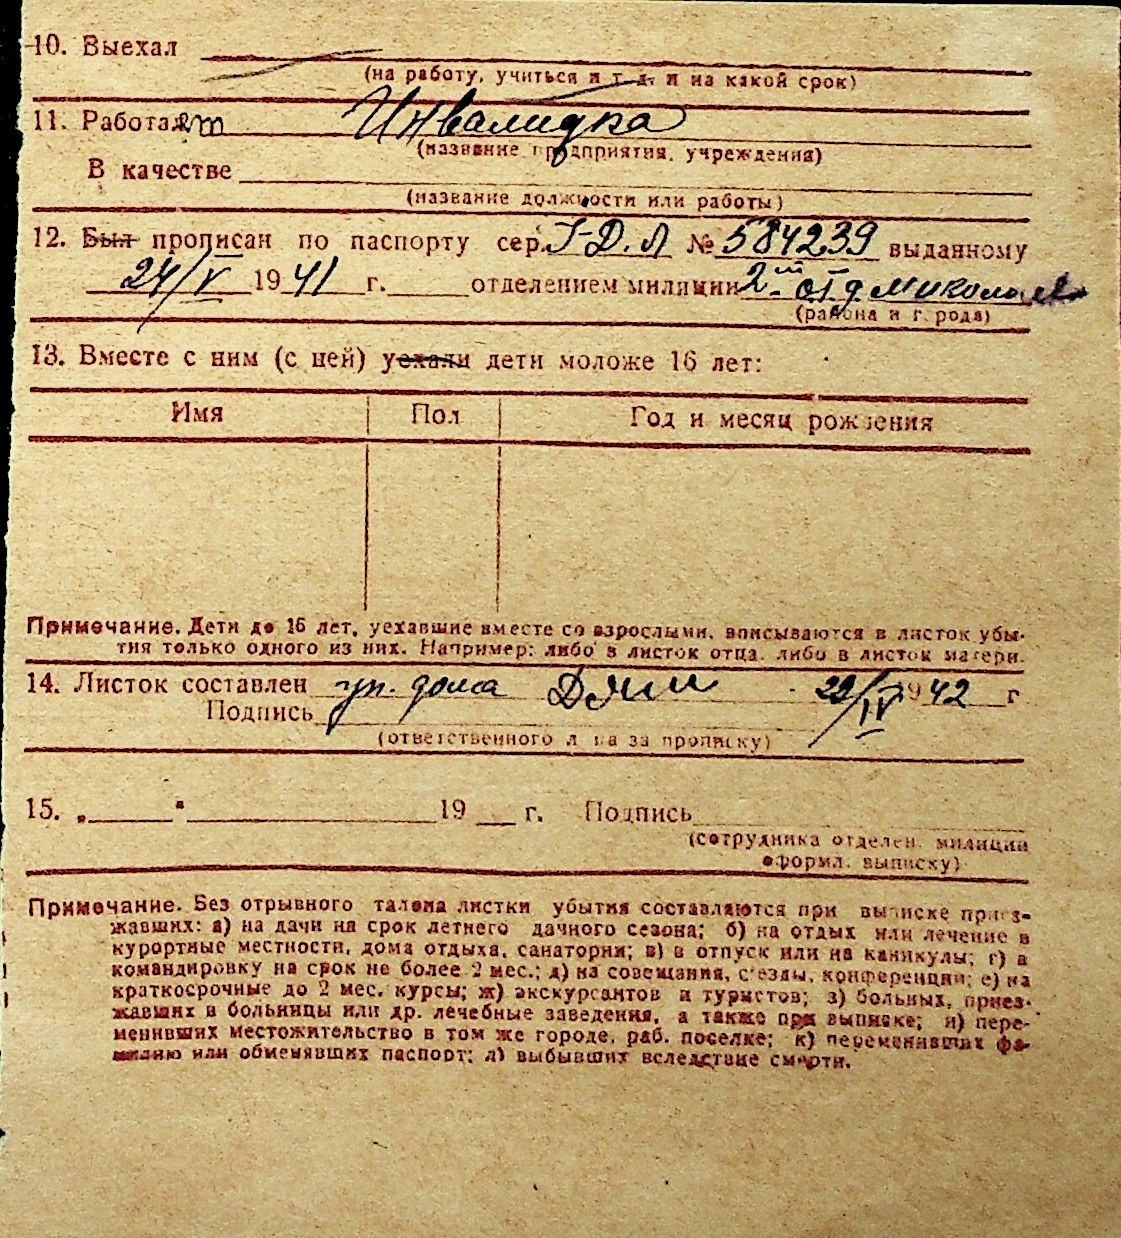 10. Выехал
(на работу, учиться и т д. и на какой срок)
11. Работает Инвалидка
(название предприятия, учреждения)
В качестве
(название должности или работы)
12. Был прописан по паспорту сер. I-Д.Л № 584239 выданному
24/V 1941 г. отделением милиции 2 отд Миколаев
(района и города)
13. Вместе с ним (с ней) уехали дети моложе 16 лет:
Имя Пол Год и месяц рождения
Примечание. Дети до 16 лет, уехавшие вместе со взрослыми, вписываются в листок убы-
тия только одного из них. Например: либо в листок отца, либо в листок матери.
14. Листок составлен уп. дома 22/IV 1942 г
Подпись
(ответственного лица за прописку)
15. „ " 19 г. Подпись
(сотрудника отделен. милиции
оформл. выписку)
Примечание. Без отрывного талона листки убытия составляются при выписке приез-
жавших: а) на дачи на срок летнего дачного сезона; б) на отдых или лечение в
курортные местности, дома отдыха, санатории; в) в отпуск или на каникулы; г) в
командировку на срок не более 2 мес.; д) на совещания, с'езды, конференции; е) на
краткосрочные до 2 мес. курсы; ж) экскурсантов и туристов; з) больных, приез-
жавших в больницы или др. лечебные заведения, а также при выписке; и) пере-
менивших местожительство в том же городе, раб. поселке; к) переменивших фа-
милию или обменявших паспорт; л) выбывших вследствие смерти.